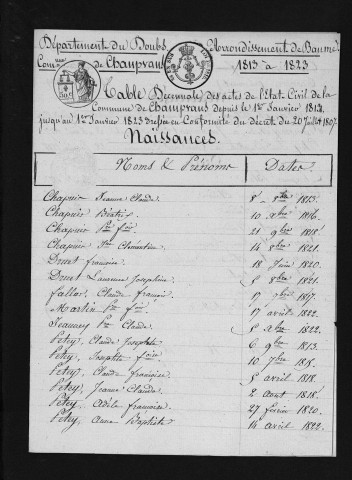 Département du Doubs Arrondissement de Baume
Comune de Champvans 1813 à 1823
Table Décennale des actes de l'Etat Civil de la
Commune de Champvans depuis le 1er Janvier 1813,
jusqu'au 1er Janvier 1823 dressée en Conformité du décret du 20 Juillet 1807.
Naissances.
Noms & Prénoms Dates
Chapuis Jeanne Claude. 8 1813.
Chapuis Béatrix 10 xbre 1816.
Chapuis Pre fois 21 9bre 1818
Chapuis Clémentine 14 8bre 1821.
Druet françoise. 18 Juin 1820.
Druet Laurence Josephine. 5 8bre 1821.
fallot Claude françois. 17 9bre 1817.
Martin Pre fois. 17 avril 1822.
Jeanney Pre Claude. 5 xbre 1822.
Petey, Claude Josephte 6 9bre 1813.
Petey, Josephte foise 10 7bre 1815.
Petey, Claude françoise 5 avril 1818.
Petey, Jeanne Claude 2 Aout 1818.
Petey, Adèle françoise. 27 fevrier 1820.
Petey, Anne Baptiste 14 avril 1822.